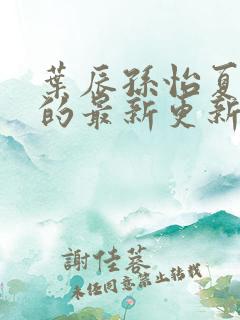 葉辰孫怡夏
的最新更新
謝佳蓉
未經同意禁止轉載